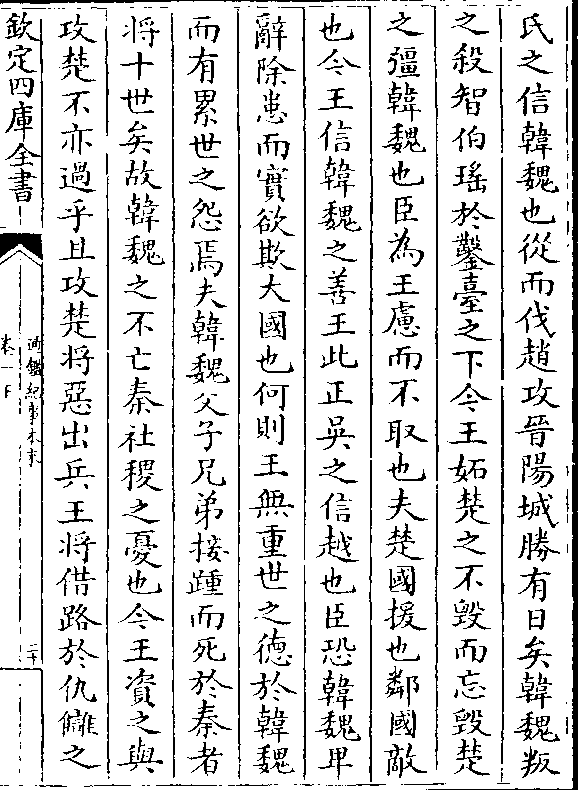 氏之信韓魏也從而伐趙攻晉陽城勝有日矣韓魏叛
之殺智伯瑤於鑿臺之下今王妬楚之不毁而忘毁楚
之彊韓魏也臣為王慮而不取也夫楚國援也鄰國敵
也今王信韓魏之善王此正吳之信越也臣恐韓魏卑
辭除患而實欲欺大國也何則王無重世之德於韓魏
而有累世之怨焉夫韓魏父子兄弟接踵而死於秦者
将十世矣故韓魏之不亡秦社稷之憂也今王資之與
攻楚不亦過乎且攻楚将惡出兵王将借路於仇讎之
欽定四庫全書
通鑑紀事本末
卷一下
二十